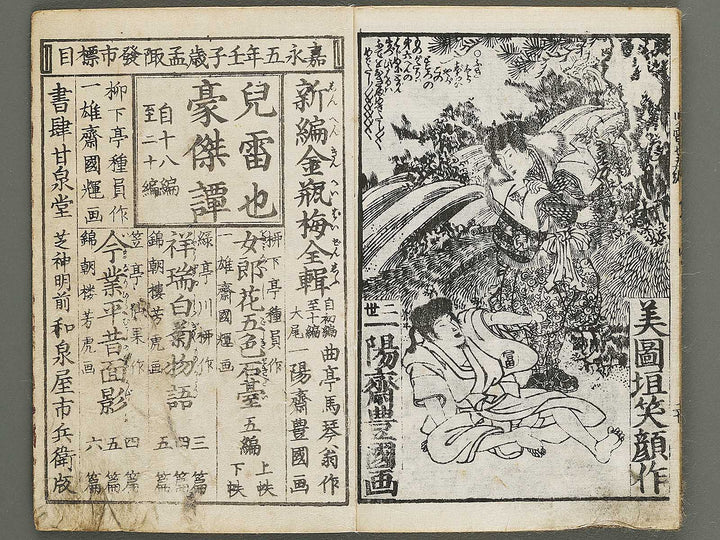 美圖垣笑顔作
二世
一陽齋豊國画
嘉永五年壬子歳孟陬發市標目
新編金瓶梅全輯
しんへんきんへいばいぜんしふ
自初編
至十編
大尾
曲亭馬琴翁作
一陽齋豊國画
兒雷也
豪傑譚
自十八編
至二十編
柳下亭種員作
一雄齋國輝画
柳下亭種員作
一雄齋國輝画
女郎花五色石臺
五編
上帙
下帙
緑亭川柳作
錦朝樓芳虎画
祥瑞白菊物語
三篇
四篇
五篇
笠亭仙果作
錦朝楼芳虎画
今業平昔面影
四篇
五篇
六篇
書肆 甘泉堂 芝神明前 和泉屋市兵衛版